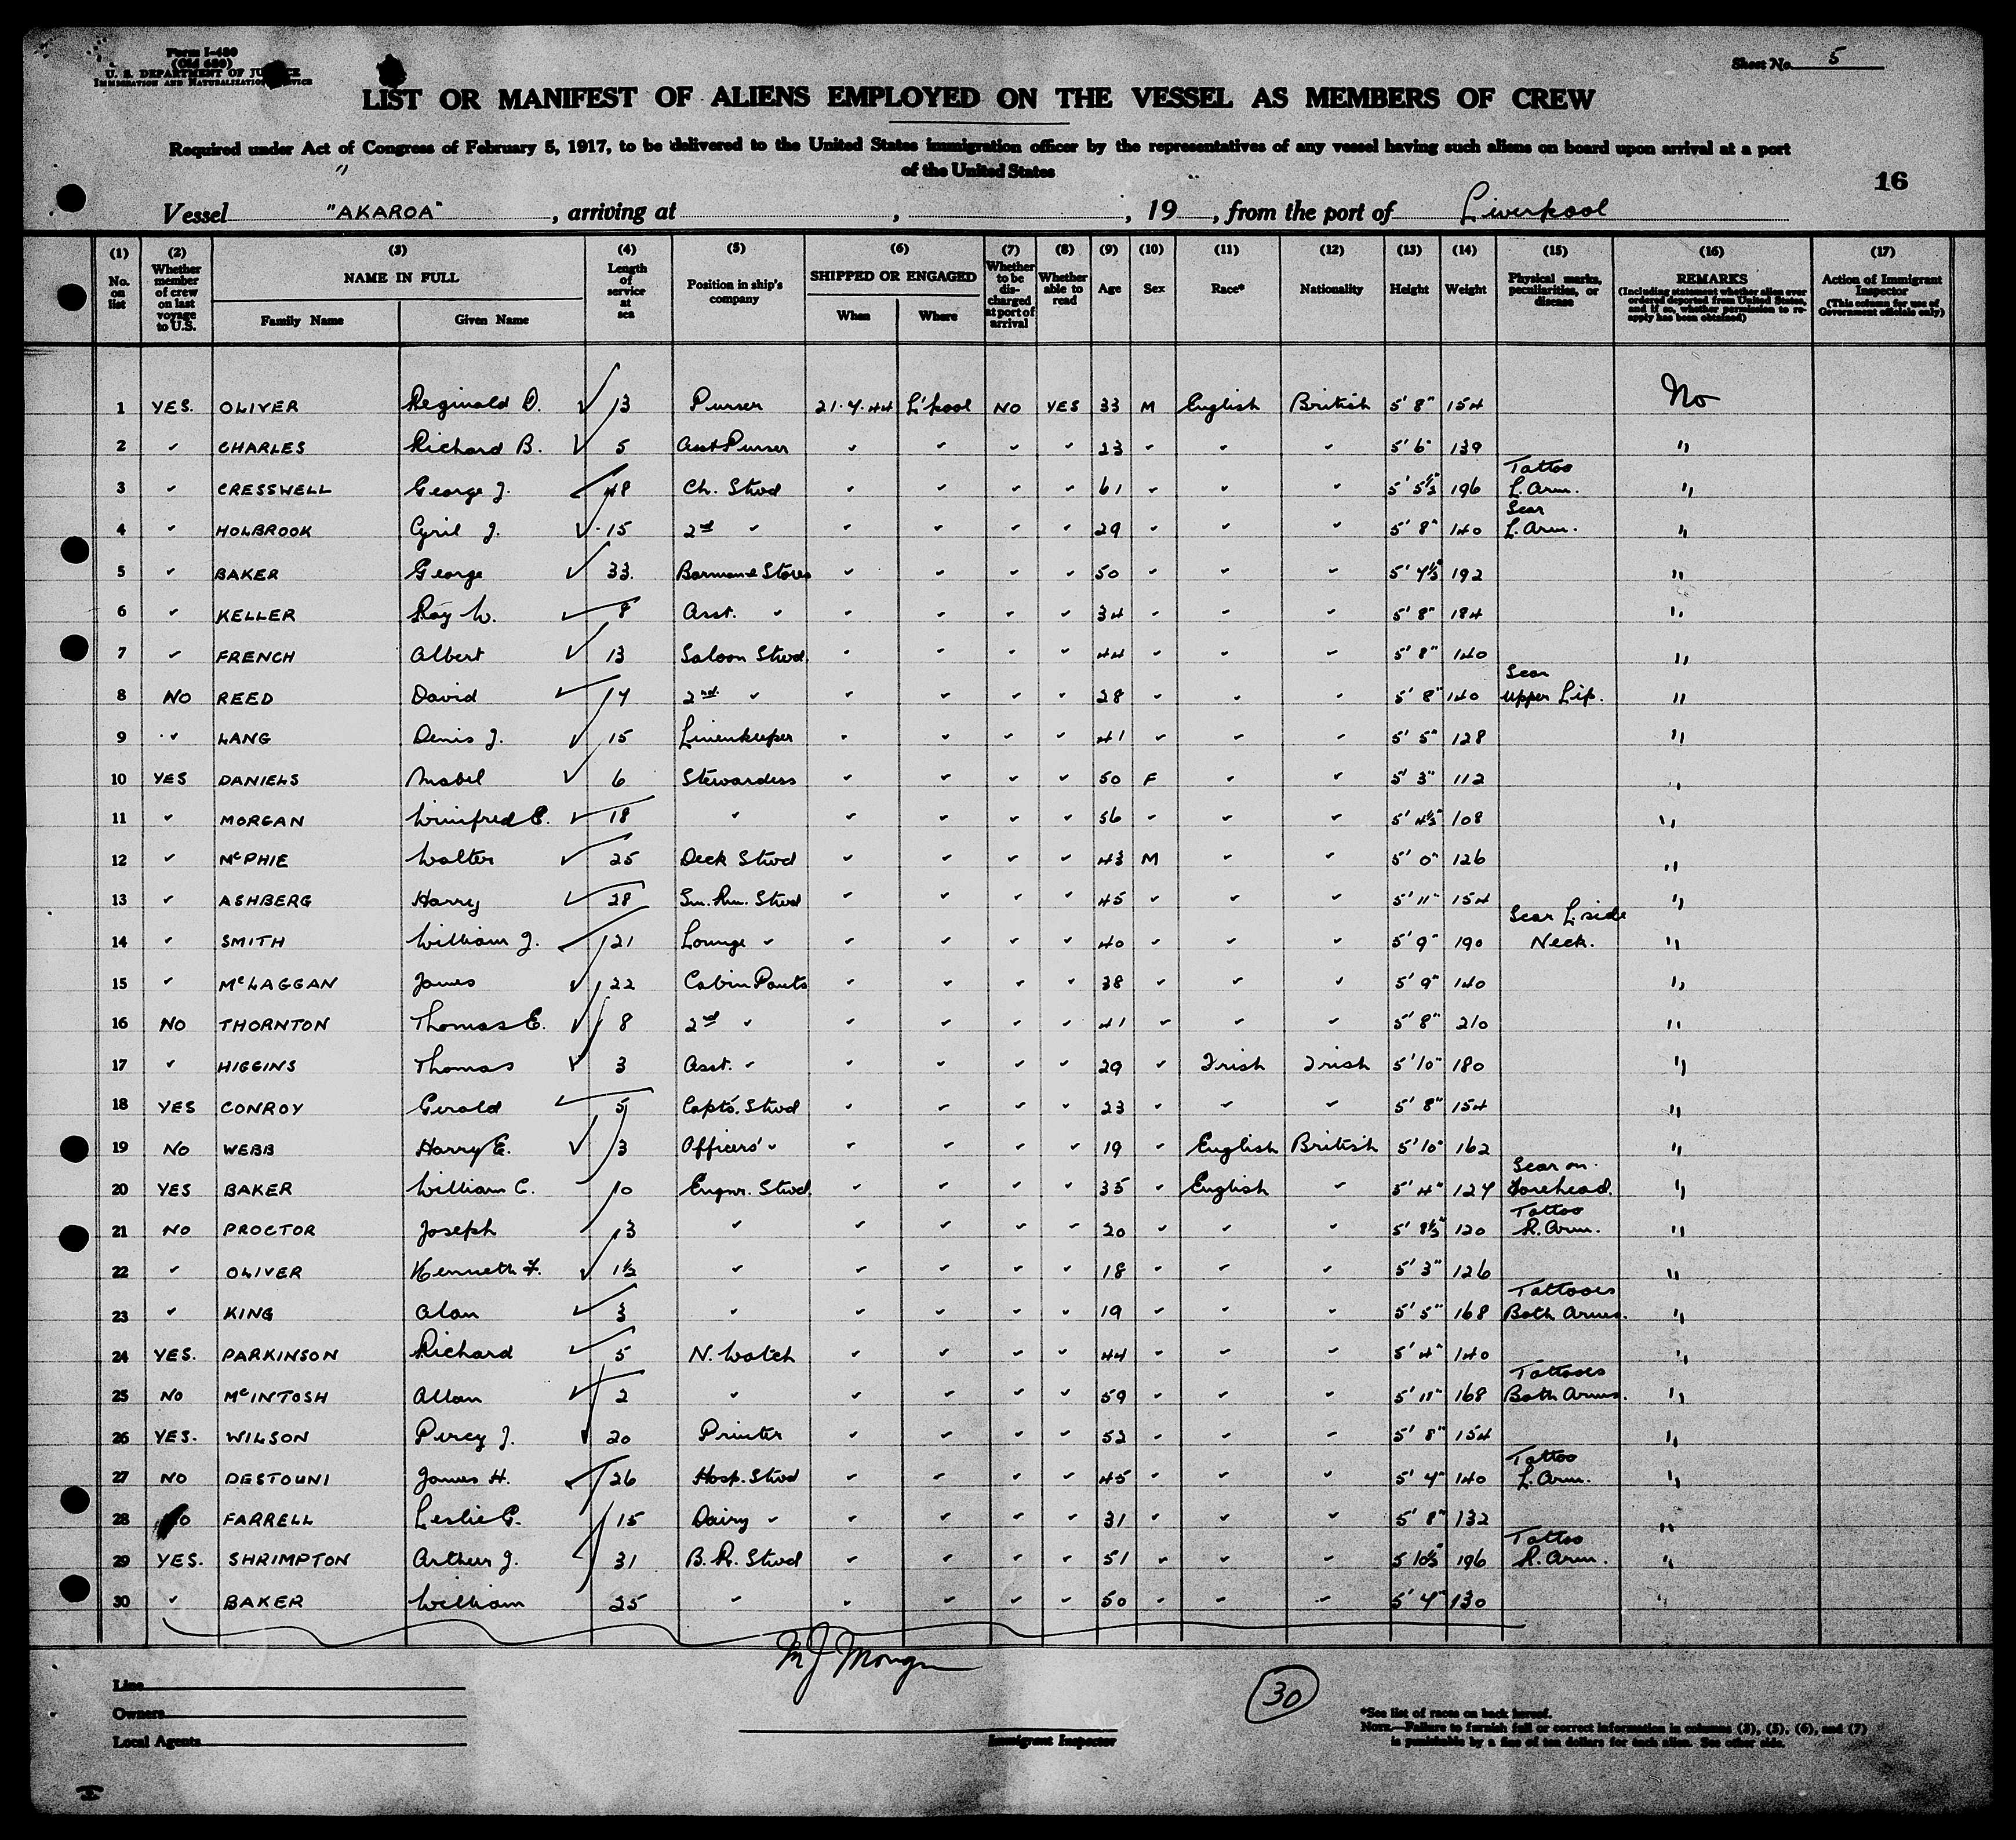 Form I-480
(Old 680)
U. S. DEPARTMENT OF JUSTICE
IMMIGRATION AND NATURALIZATION SERVICE
Sheet No. 5
LIST OR MANIFEST OF ALIENS EMPLOYED ON THE VESSEL AS MEMBERS OF CREW
Required under Act of Congress of February 5, 1917, to be delivered to the United States immigration officer by the representatives of any vessel having such aliens on board upon arrival at a port
of the United States
16
Vessel "AKAROA", arriving at , , 19 , from the port of Liverpool
(1) (2) (3) (4) (5) (6) (7) (8) (9) (10) (11) (12) (13) (14) (15) (16) (17)
No. on list
Whether member of crew on last voyage to U.S.
NAME IN FULL
Family Name Given Name
Length of service at sea
Position in ship's company
SHIPPED OR ENGAGED
When Where
Whether to be discharged at port of arrival
Whether able to read
Age Sex Race* Nationality Height Weight
Physical marks, peculiarities, or disease
REMARKS
(Including statement whether alien ever ordered deported from United States, and if so, whether permission to reapply has been obtained)
Action of Immigrant Inspector
(This column for use of Government officials only)
1 YES. OLIVER Reginald D. 13 Purser 21.4.44 L'pool NO YES 33 M English British 5' 8" 154 No
2 " CHARLES Richard B. 5 Asst Purser " " " " 23 " " " 5' 6" 139 "
3 " CRESSWELL George J. 48 Ch. Stwd " " " " 61 " " " 5' 5½" 196 Tattoo L. Arm. "
4 " HOLBROOK Cyril J. 15 2nd " " " " " 29 " " " 5' 8" 140 Scar L. Arm. "
5 " BAKER George 33. Barman & Stores " " " " 50 " " " 5' 4½" 192 "
6 " KELLER Roy W. 8 Asst. " " " " " 34 " " " 5' 8" 184 "
7 " FRENCH Albert 13 Saloon Stwd. " " " " 44 " " " 5' 8" 140 "
8 NO REED David 14 2nd " " " " " 28 " " " 5' 8" 140 Scar Upper Lip. "
9 " LANG Denis J. 15 Linenkeeper " " " " 41 " " " 5' 5" 128 "
10 YES DANIELS Mabel 6 Stewardess " " " " 50 F " " 5' 3" 112 "
11 " MORGAN Winifred E. 18 " " " " " 56 " " " 5' 4½" 108 "
12 " McPHIE Walter 25 Deck Stwd " " " " 43 M " " 5' 0" 126 "
13 " ASHBERG Harry 28 Sm. Rm. Stwd " " " " 45 " " " 5' 11" 154 "
14 " SMITH William J. 21 Lounge " " " " " 40 " " " 5' 9" 190 Scar L. side Neck. "
15 " McLAGGAN James 22 Cabin Pants " " " " 38 " " " 5' 9" 140 "
16 NO THORNTON Thomas E. 8 2nd " " " " " 41 " " " 5' 8" 210 "
17 " HIGGINS Thomas 3 Asst. " " " " " 29 " Irish Irish 5' 10" 180 "
18 YES CONROY Gerald 5 Capts. Stwd " " " " 23 " " " 5' 8" 154 "
19 NO WEBB Harry E. 3 Officers' " " " " " 19 " English British 5' 10" 162 "
20 YES BAKER William C. 10 Engnr. Stwd. " " " " 35 " English " 5' 4" 124 Scar on Forehead. "
21 NO PROCTOR Joseph 3 " " " " " 20 " " " 5' 8½" 120 Tattoo R. Arm. "
22 " OLIVER Kenneth F. 1½ " " " " " 18 " " " 5' 3" 126 "
23 " KING Alan 3 " " " " " 19 " " " 5' 5" 168 Tattooes Both Arms. "
24 YES. PARKINSON Richard 5 N. Watch " " " " 44 " " " 5' 4" 140 "
25 NO McINTOSH Allan 2 " " " " " 59 " " " 5' 11" 168 Tattooes Both Arms. "
26 YES. WILSON Percy J. 20 Printer " " " " 52 " " " 5' 8" 154 "
27 NO DESTOUNI James H. 26 Hosp. Stwd " " " " 45 " " " 5' 4" 140 Tattoo L. Arm. "
28 NO FARRELL Leslie G. 15 Dairy " " " " " 31 " " " 5' 8" 132 "
29 YES. SHRIMPTON Arthur J. 31 B. R. Stwd " " " " 51 " " " 5 10½" 196 Tattoo R. Arm. "
30 " BAKER William 25 " " " " " 50 " " " 5' 4" 130 "
Line
Owners
Local Agents
Immigrant Inspector
30
*See list of races on back hereof.
NOTE.—Failure to furnish full or correct information in columns (3), (5), (6), and (7)
is punishable by a fine of ten dollars for each alien. See other side.